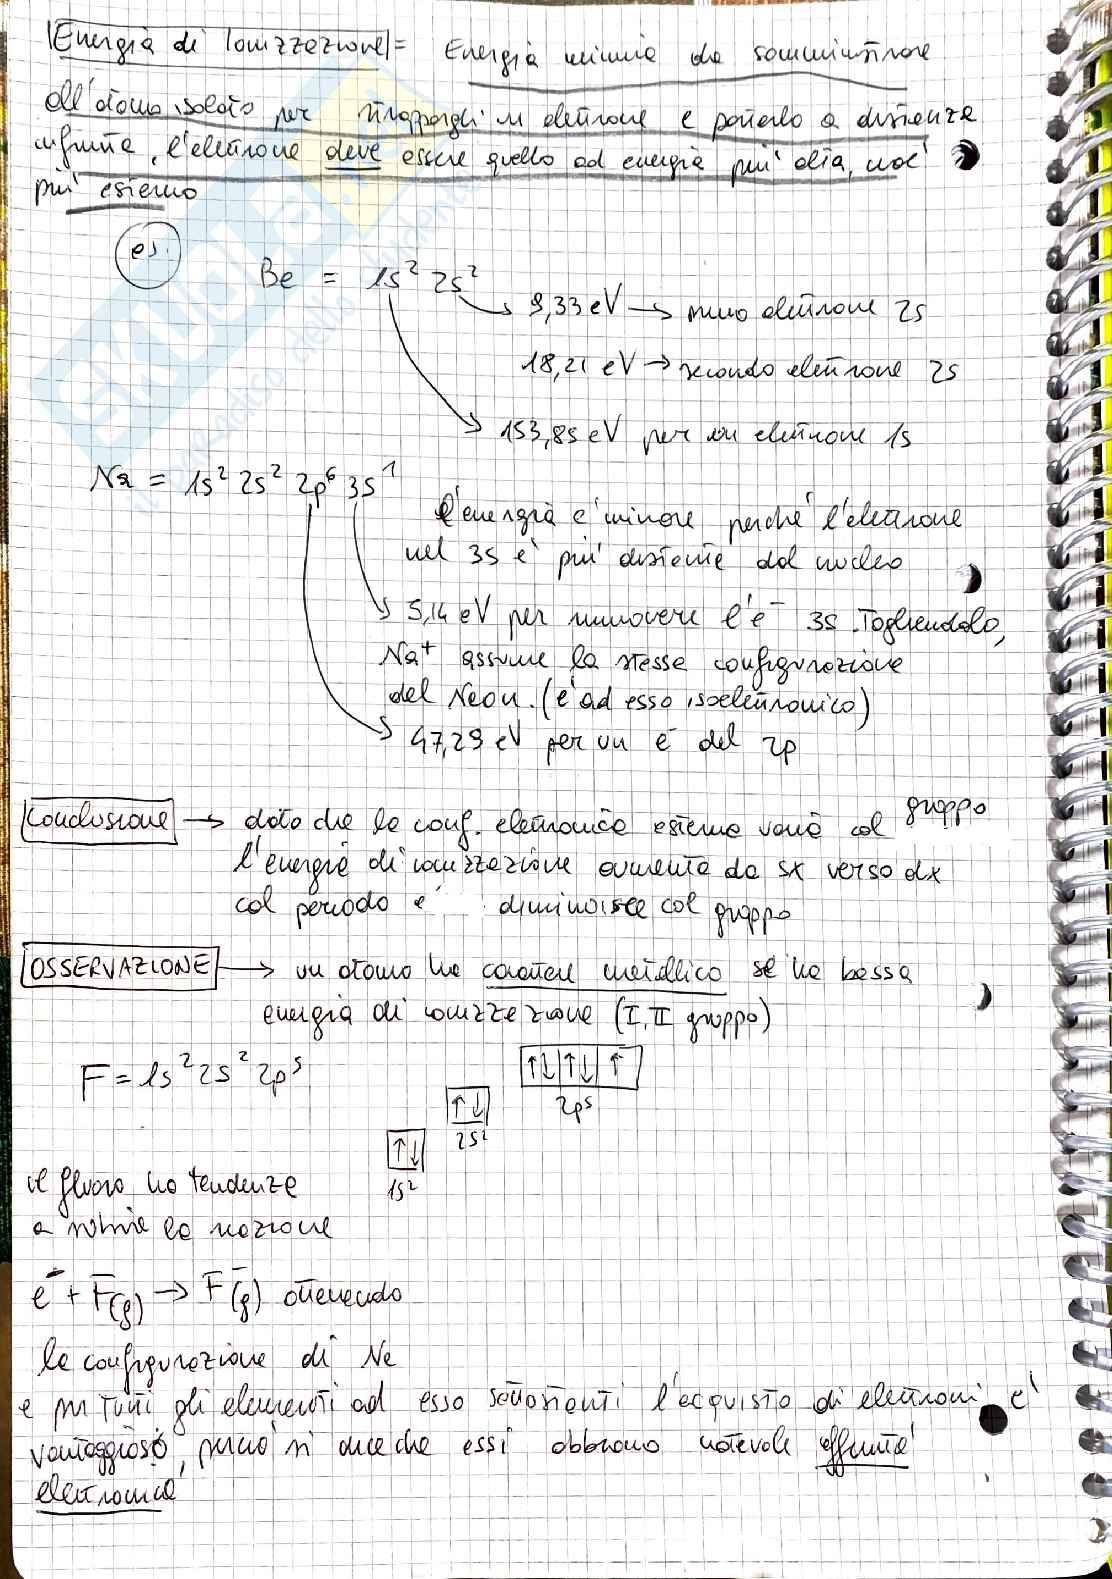 Energia di Ionizzazione = Energia minima da somministrare
all'atomo isolato per strappargli un elettrone e portarlo a distanza
infinita, l'elettrone deve essere quello ad energia più alta, cioè
più esterno
es.
Be = 1s² 2s²
9,33 eV → primo elettrone 2s
18,21 eV → secondo elettrone 2s
153,85 eV per un elettrone 1s
Na = 1s² 2s² 2p⁶ 3s¹
l'energia è minore perché l'elettrone
nel 3s è più distante dal nucleo
5,14 eV per rimuovere l'e⁻ 3s. Togliendolo,
Na⁺ assume la stessa configurazione
del Neon. (è ad esso isoelettronico)
47,29 eV per un e⁻ del 2p
Conclusione → dato che la conf. elettronica esterna varia col gruppo
l'energia di ionizzazione aumenta da sx verso dx
col periodo e diminuisce col gruppo
OSSERVAZIONE → un atomo ha carattere metallico se ha bassa
energia di ionizzazione (I, II gruppo)
F = 1s² 2s² 2p⁵
↑↓ ↑↓ ↑
2p⁵
↑↓
2s²
↑↓
1s²
il fluoro ha tendenza
a subire la reazione
e⁻ + F(g) → F⁻(g) ottenendo
la configurazione di Ne
e per tutti gli elementi ad esso sottostanti l'acquisto di elettroni è
vantaggioso, perciò si dice che essi abbiano notevole affinità
elettronica
SKUOLA
il paradiso dello studente